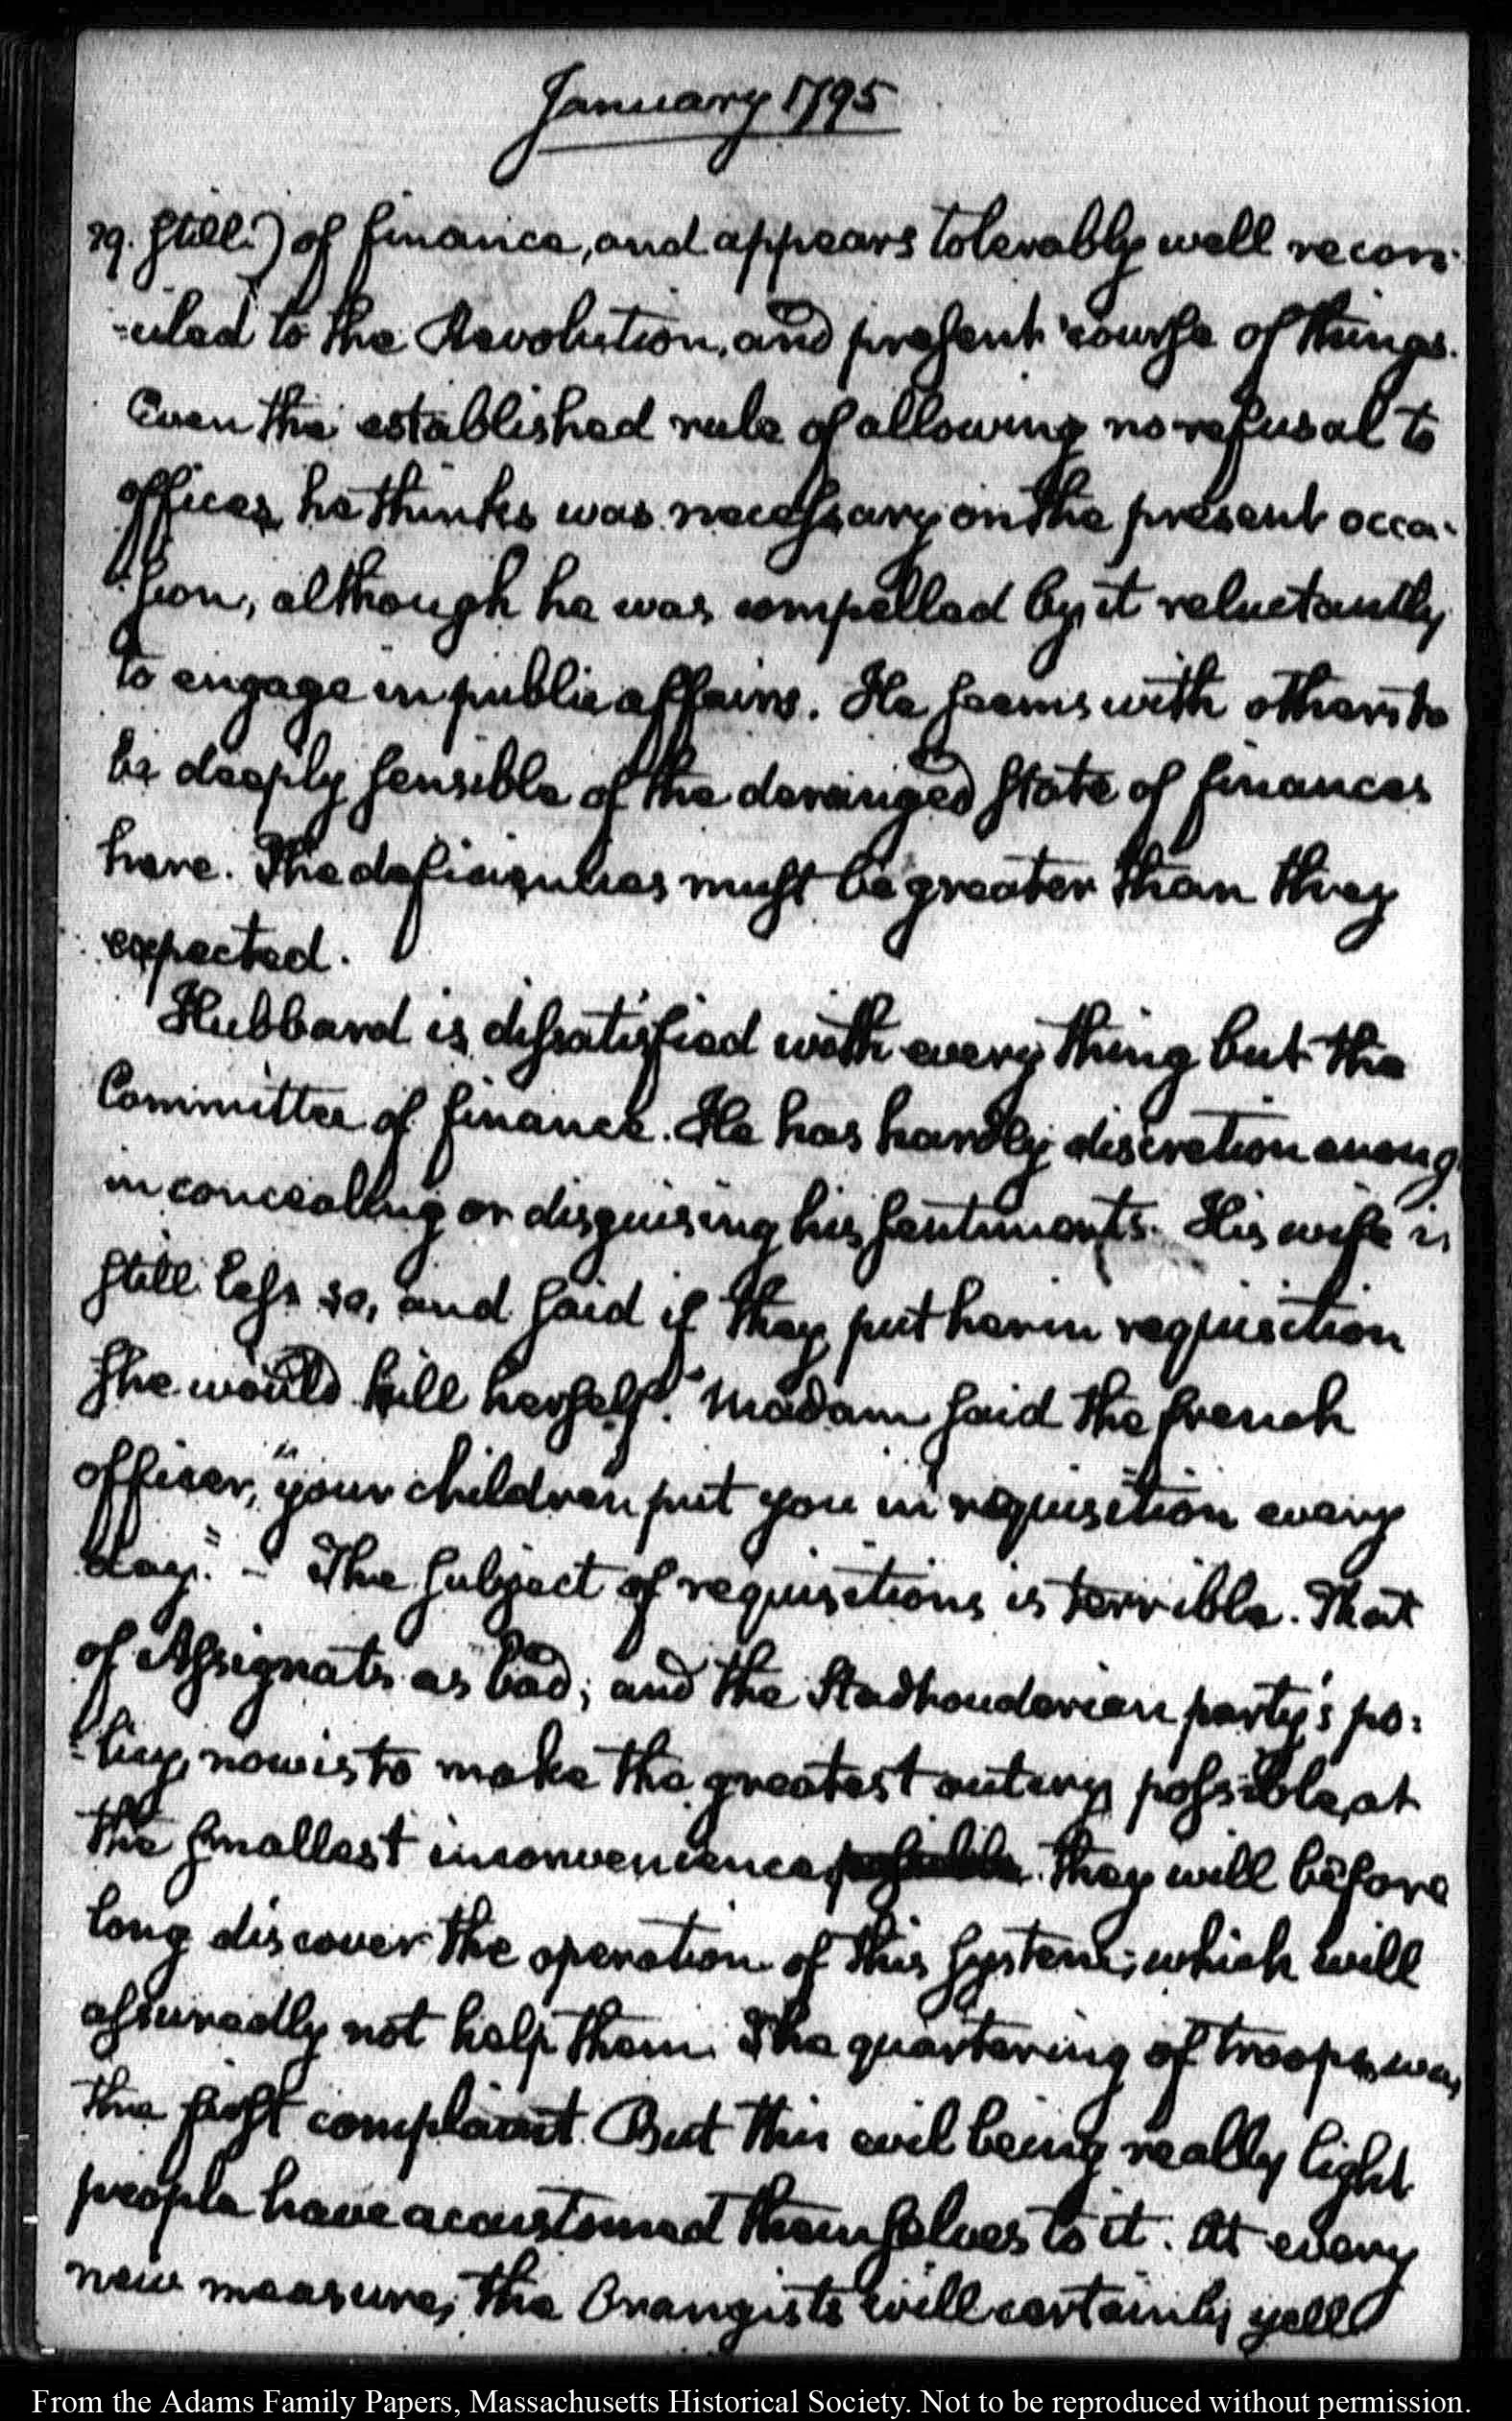 January 1795
29. still.) of finance, and appears tolerably well recon:
:ciled to the Revolution, and present course of things.
Even the established rule of allowing no refusal to
offices, he thinks was necessary on the present occa:
:sion, although he was compelled by it reluctantly
to engage in public affairs. He seems with others to
be deeply sensible of the deranged state of finances
here. The deficiencies must be greater than they
expected.
Hubbard is dissatisfied with every thing but the
Committee of finance. He has hardly discretion enoug
in concealing or disguising his sentiments. His wife is
still less so, and said if they put her in requisition
she would kill herself. "Madam said the french
officer, "your children put you in requisition every
day." – The subject of requisitions is terrible. That
of Assignats as bad; and the Stadhouderian party's po:
:licy, now is to make the greatest outcry possible, at
the smallest inconvenience. They will before
long discover the operation of this system; which will
assuredly not help them. The quartering of troops, was
the first complaint. But this evil being really light
people have accustomed themselves to it. At every
new measure, the Orangists will certainly yell
From the Adams Family Papers, Massachusetts Historical Society. Not to be reproduced without permission.